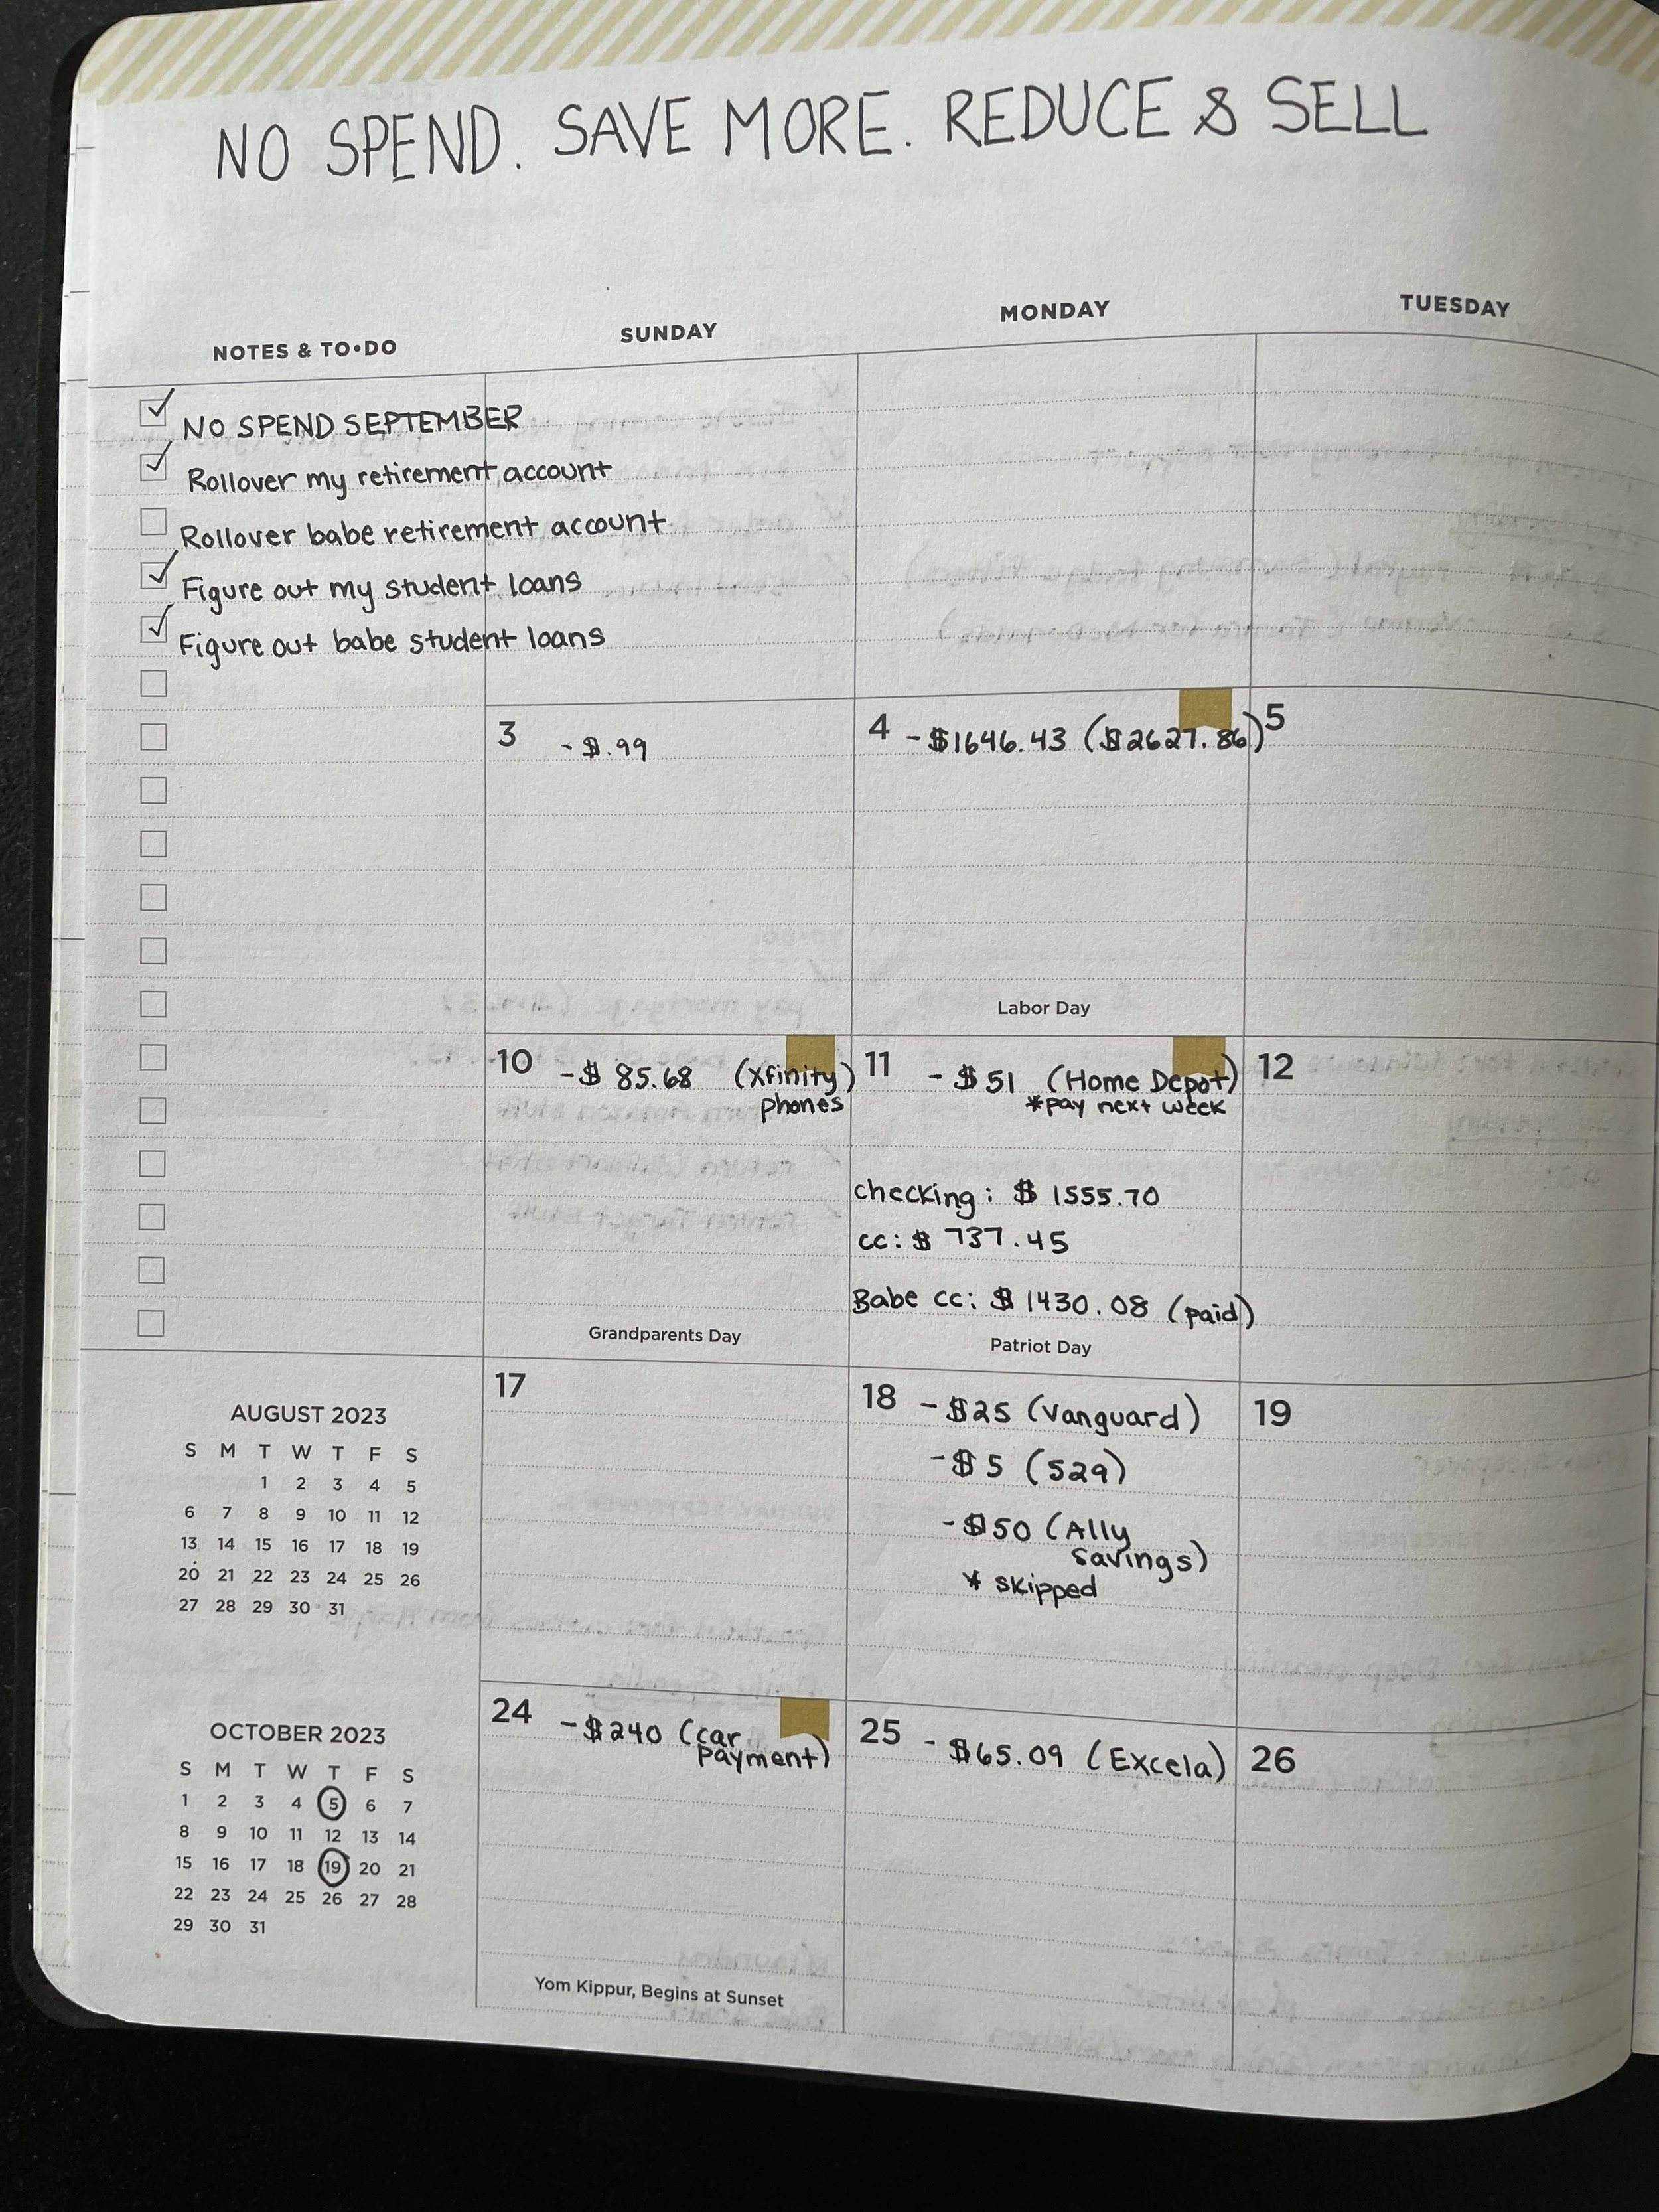 NO SPEND. SAVE MORE. REDUCE & SELL
NOTES & TO•DO
SUNDAY
MONDAY
TUESDAY
NO SPEND SEPTEMBER
Rollover my retirement account
Rollover babe retirement account
Figure out my student loans
Figure out babe student loans
3 -$.99
4 -$1646.43 ($2627.86)
5
Labor Day
10 -$85.68 (Xfinity)
phones
Grandparents Day
11 -$51 (Home Depot)
*pay next week
checking: $1555.70
cc: $737.45
Babe cc: $1430.08 (paid)
Patriot Day
12
17
18 -$25 (Vanguard)
-$5 (529)
-$50 (Ally
savings)
* skipped
19
24 -$240 (car
payment)
Yom Kippur, Begins at Sunset
25 -$65.09 (Excela)
26
AUGUST 2023
S M T W T F S
1 2 3 4 5
6 7 8 9 10 11 12
13 14 15 16 17 18 19
20 21 22 23 24 25 26
27 28 29 30 31
OCTOBER 2023
S M T W T F S
1 2 3 4 5 6 7
8 9 10 11 12 13 14
15 16 17 18 19 20 21
22 23 24 25 26 27 28
29 30 31